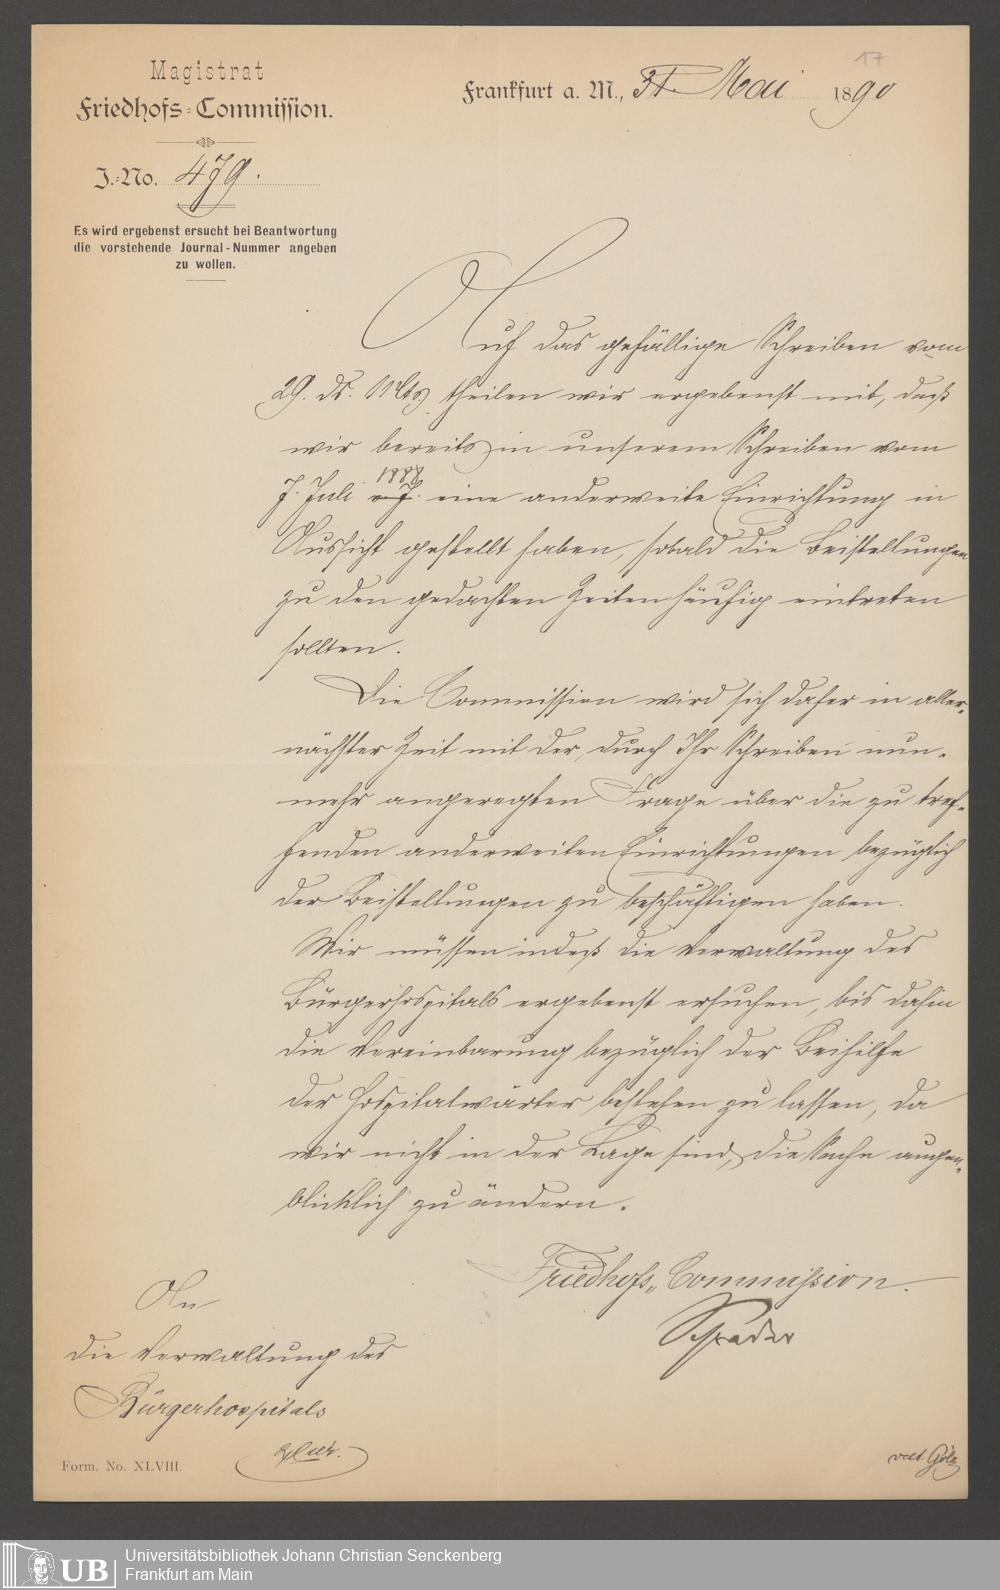 17
Magistrat
Friedhofs-Commission.
Frankfurt a. M., 31. Mai 1890
J.-No. 479.
Es wird ergebenst ersucht bei Beantwortung
die vorstehende Journal-Nummer angeben
zu wollen.
Auf das gefällige Schreiben vom
29. ds. Mts. theilen wir ergebenst mit, daß
wir bereits in unserem Schreiben vom
1888
7. Juli v. J. eine anderweite Einrichtung in
Aussicht gestellt haben, sobald die Beistellungen
zu den gedachten Zeiten häufig eintreten
sollten.
Die Commission wird sich daher in aller-
nächster Zeit mit der durch Ihr Schreiben nun-
mehr angeregten Frage über die zu tref-
fenden anderweiten Einrichtungen bezüglich
der Beistellungen zu beschäftigen haben.
Wir müssen indeß die Verwaltung des
Bürgerhospitals ergebenst ersuchen, bis dahin
die Vereinbarung bezüglich der Beihilfe
der Hospitalwärter bestehen zu lassen, da
wir nicht in der Lage sind, die Sache augen-
blicklich zu ändern.
Friedhofs-Commission.
Schrader
An
die Verwaltung des
Bürgerhospitals
hier.
Form. No. XLVIII.
vdt. Götz
UB
Universitätsbibliothek Johann Christian Senckenberg
Frankfurt am Main